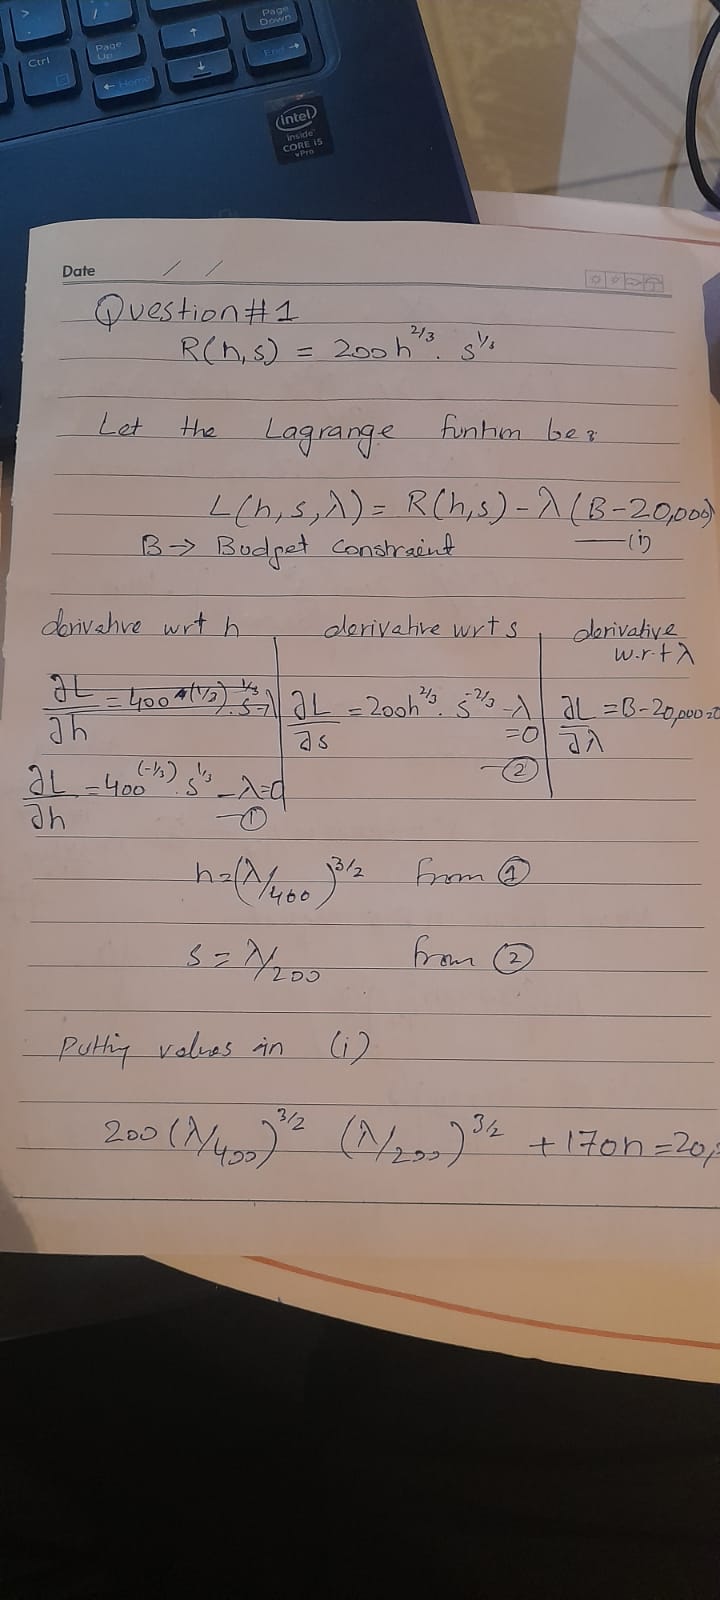 >
/
Page
Down
Ctrl
Page
Up
↑
End →
← Home
↓
intel
inside
CORE i5
vPro
Date / /
Question#1
R(h,s) = 200h^2/3 . s^1/3
Let the Lagrange funtion be:
L(h,s,λ) = R(h,s) - λ (B-20,000)
B → Budget Constraint —(i)
derivative wrt h
∂L/∂h = 400^(-1/3) . s^1/3 - λ=0
—①
derivative wrt s
∂L/∂s = 200h^2/3 . s^-2/3 - λ
=0
—②
derivative
w.r.t λ
∂L/∂λ = B-20,000=0
h=(λ/400)^3/2 from ①
s = λ/200 from ②
Putting values in (i)
200 (λ/400)^3/2 (λ/200)^3/2 + 170h = 20,